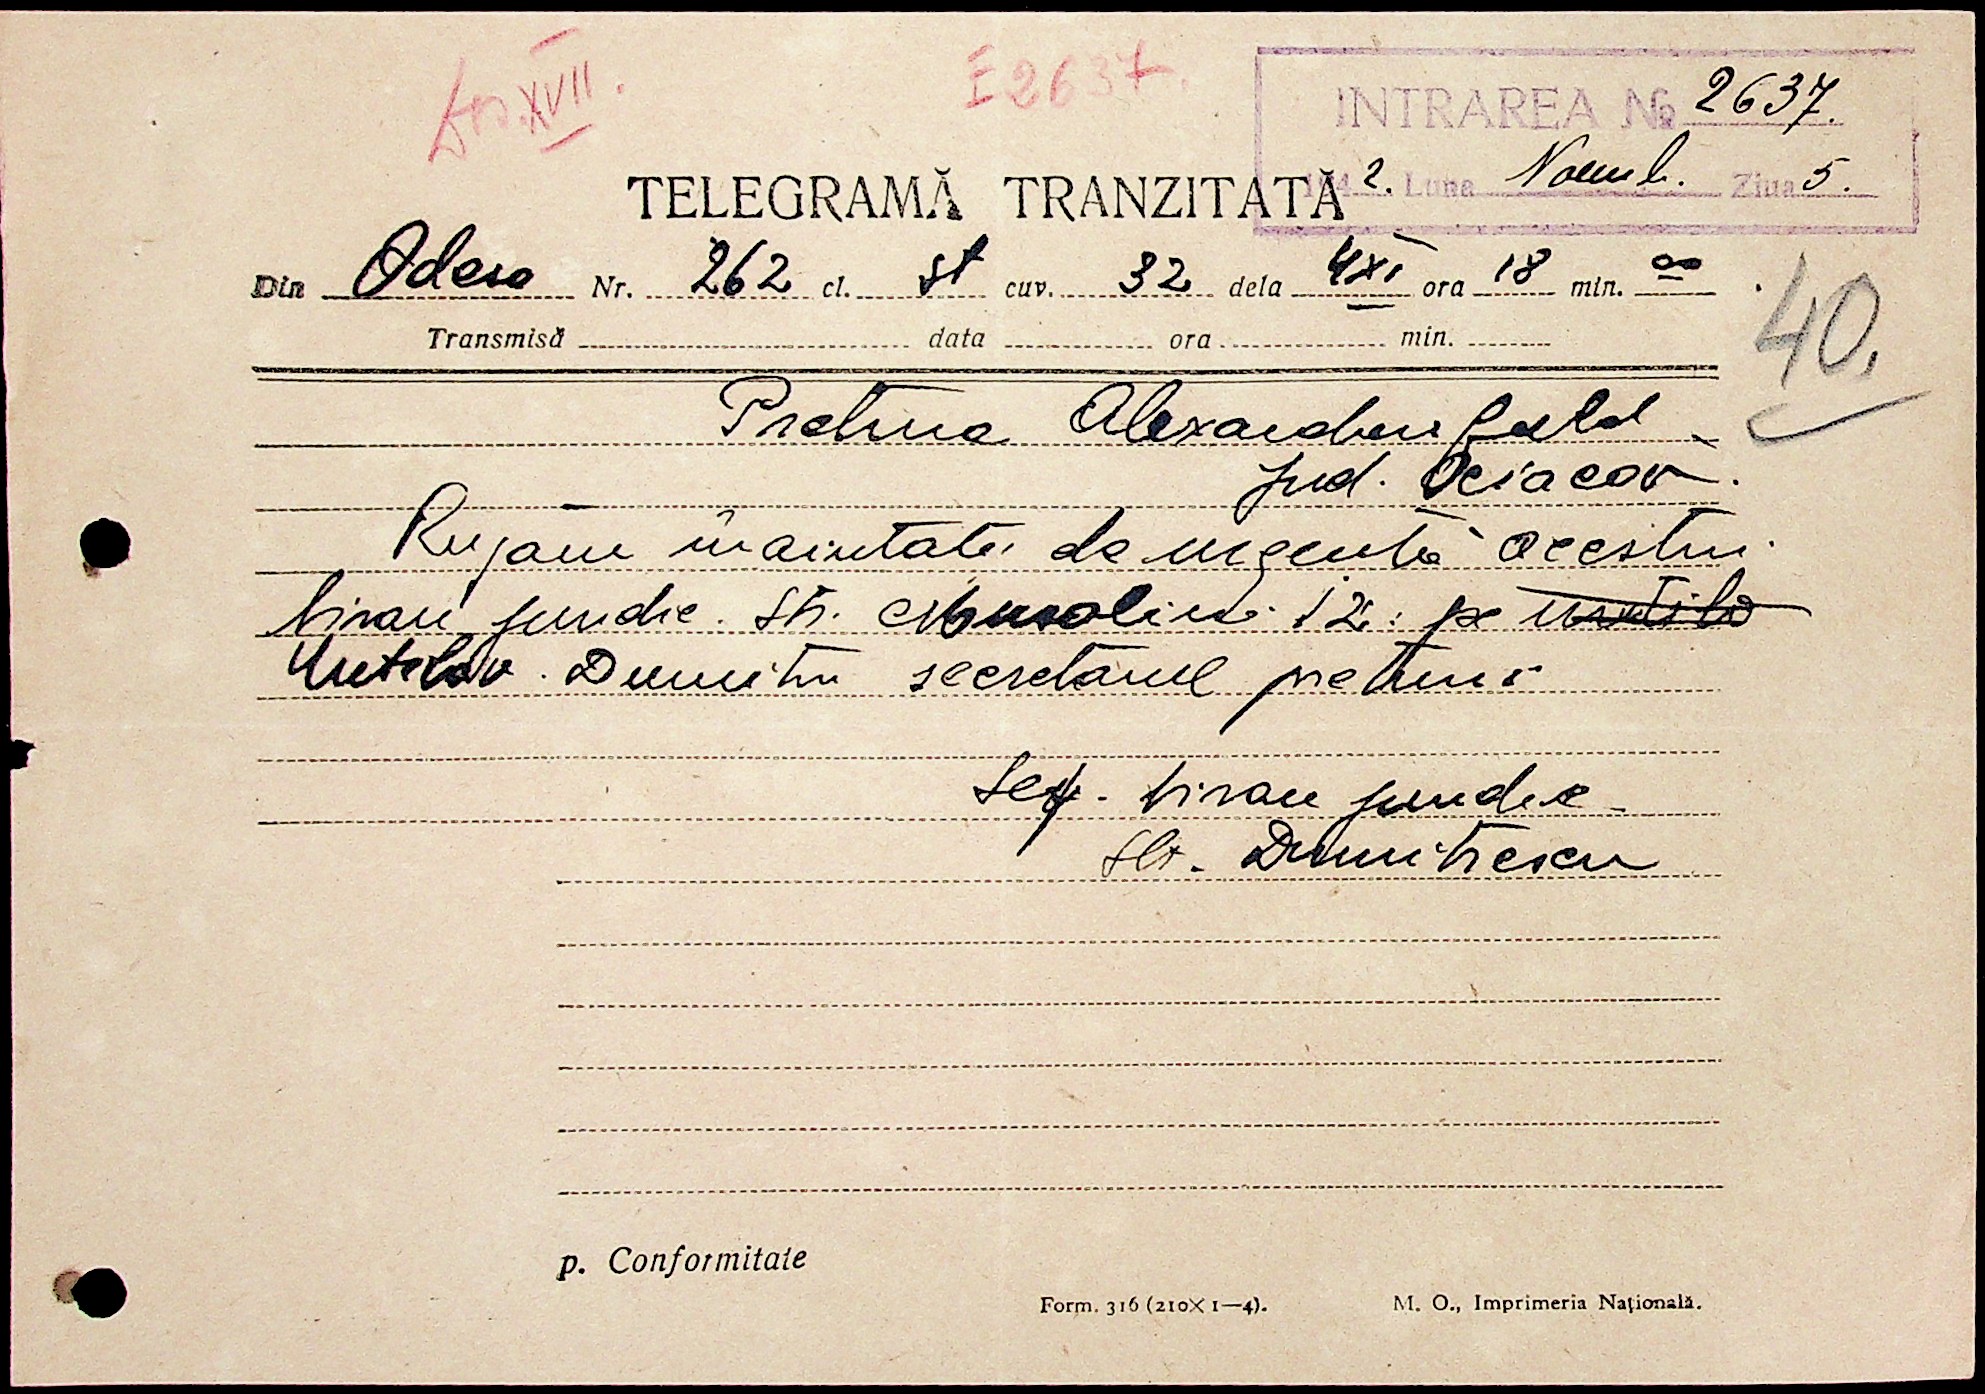 Dos. XVII.
I 2637.
INTRAREA No 2637.
1942. Luna Noemb. Ziua 5.
TELEGRAMĂ TRANZITATĂ
Din Odesa Nr. 262 cl. st cuv. 32 dela 4 XI ora 18 min. 00
40.
Transmisă data ora min.
Pretura Alexanderfeld
jud. Oceacov.
Rugăm înaintati de urgentă acestui
birou juridic. Str. Musolini 12. pe
Dumitru secretarul preturii
Sef. birou juridic
Slt. Dumitrescu
p. Conformitate
Form. 316 (210X1—4). M. O., Imprimeria Naţională.